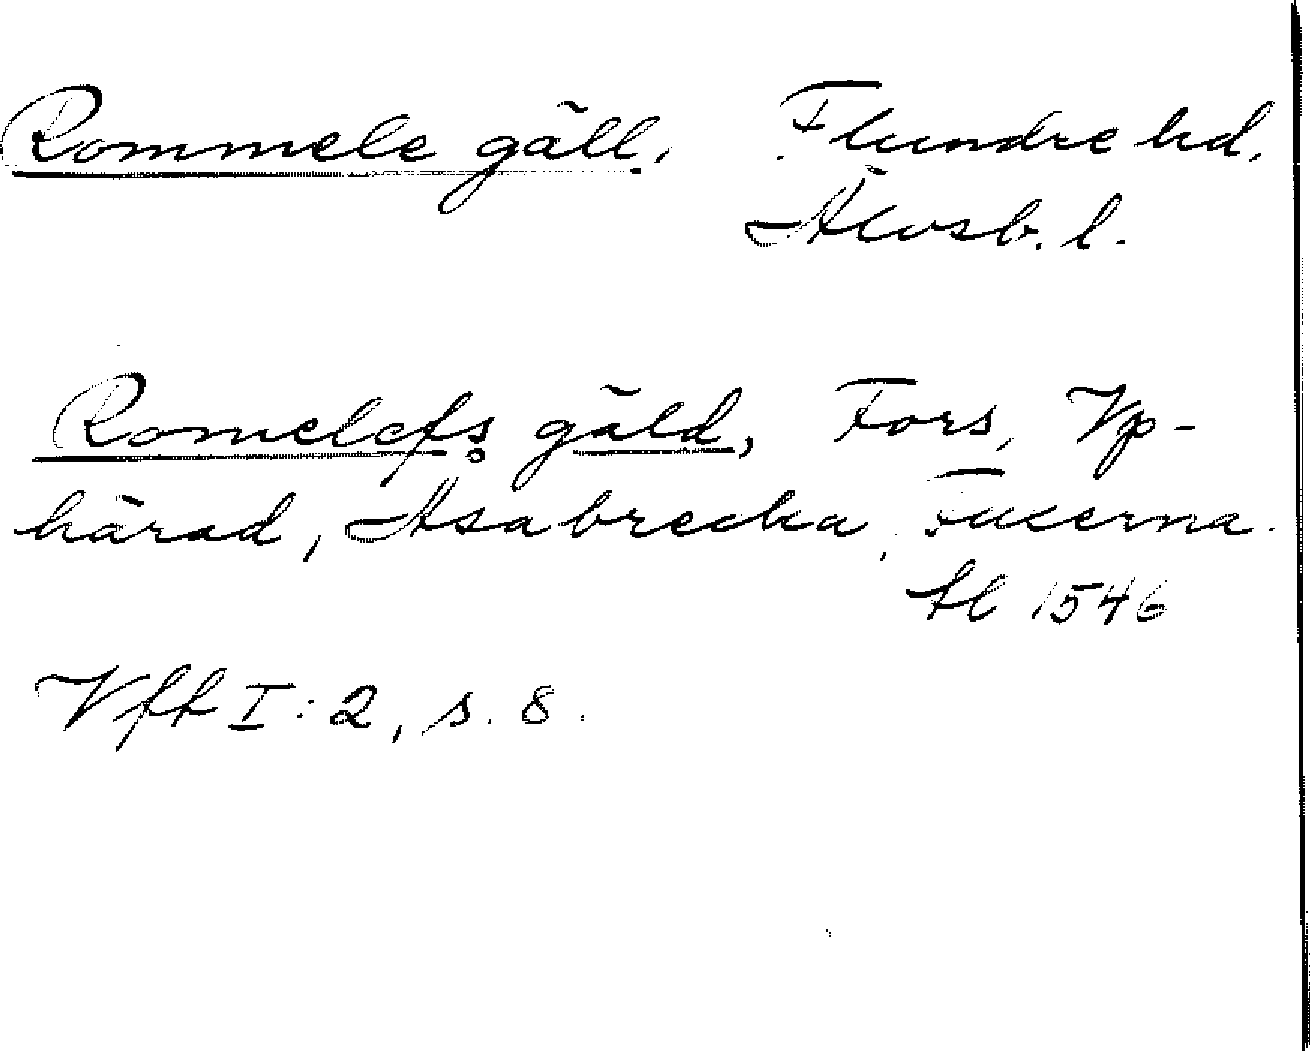 Rommele gäll. Flundre hd.
Älvsb. l.
Romelefs gäld, Fors, Vp-
härad, Åsabrecka, Fucerna.
Hl 1546
Vfft I:2, s. 8.